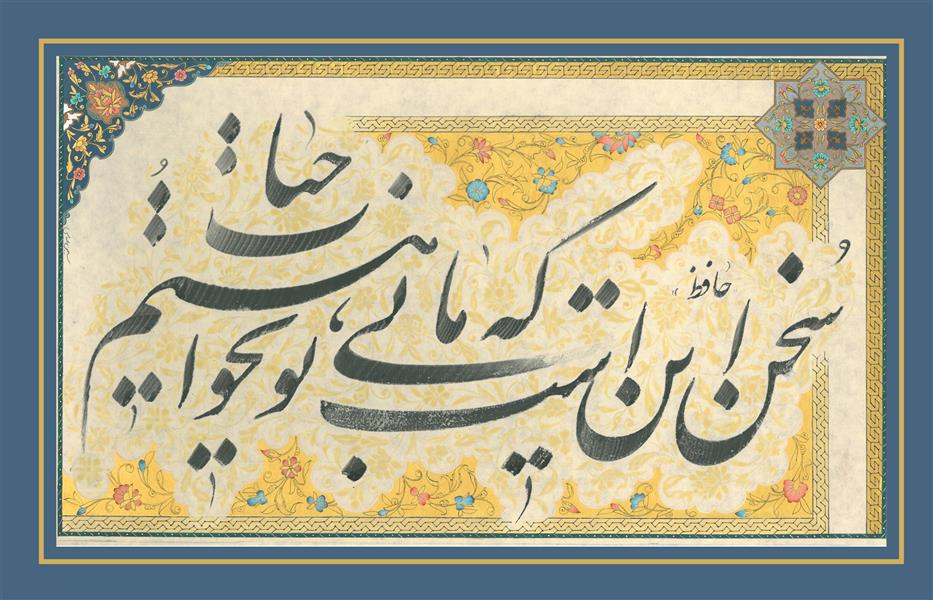 حافظ
سخن این است که ما بی تو نخواهیم حیات